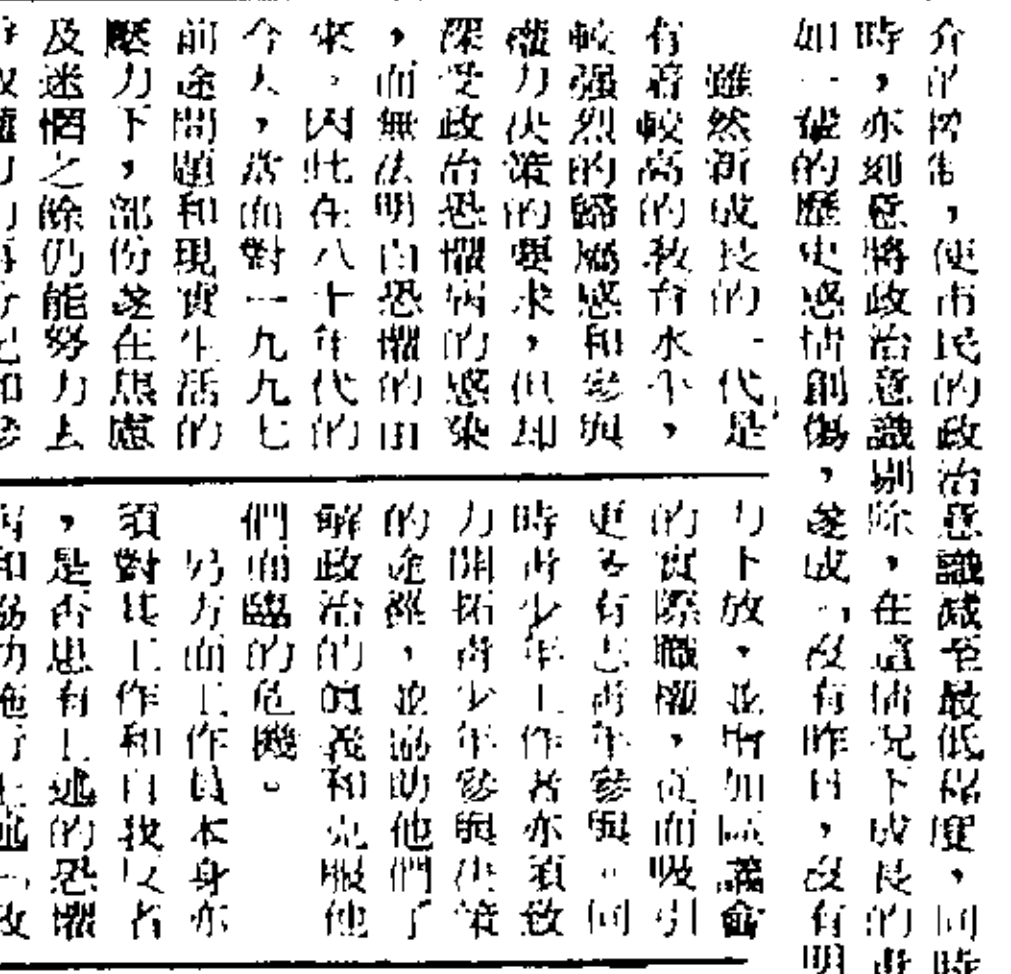 介的控制，使市民的政治意識減至最低程度，同時
時，亦刻意將政治意識剔除，在這情况下成長的青
如一般的歷史感情創傷，遂成「沒有昨日，沒有明
雖然新成長的一代，是
有着較高的教育水平，
較强烈的歸屬感和參與
權力决策的要求，但却
深受政治恐懼病的感染
，而無法明白恐懼的由
來。因此在八十年代的
今天，當面對一九九七
前途問題和現實生活的
壓力下，部份遂在焦慮
及迷惘之餘仍能努力去
力下放，並增加區議會
的實際職權，從而吸引
更多有志青年參與。同
時青少年工作者亦須致
力開拓青少年參與决策
的途徑，並協助他們了
解政治的意義和克服他
們面臨的危機。
另方面工作員本身亦
須對其工作和自我反省
，是否患有上述的恐懼